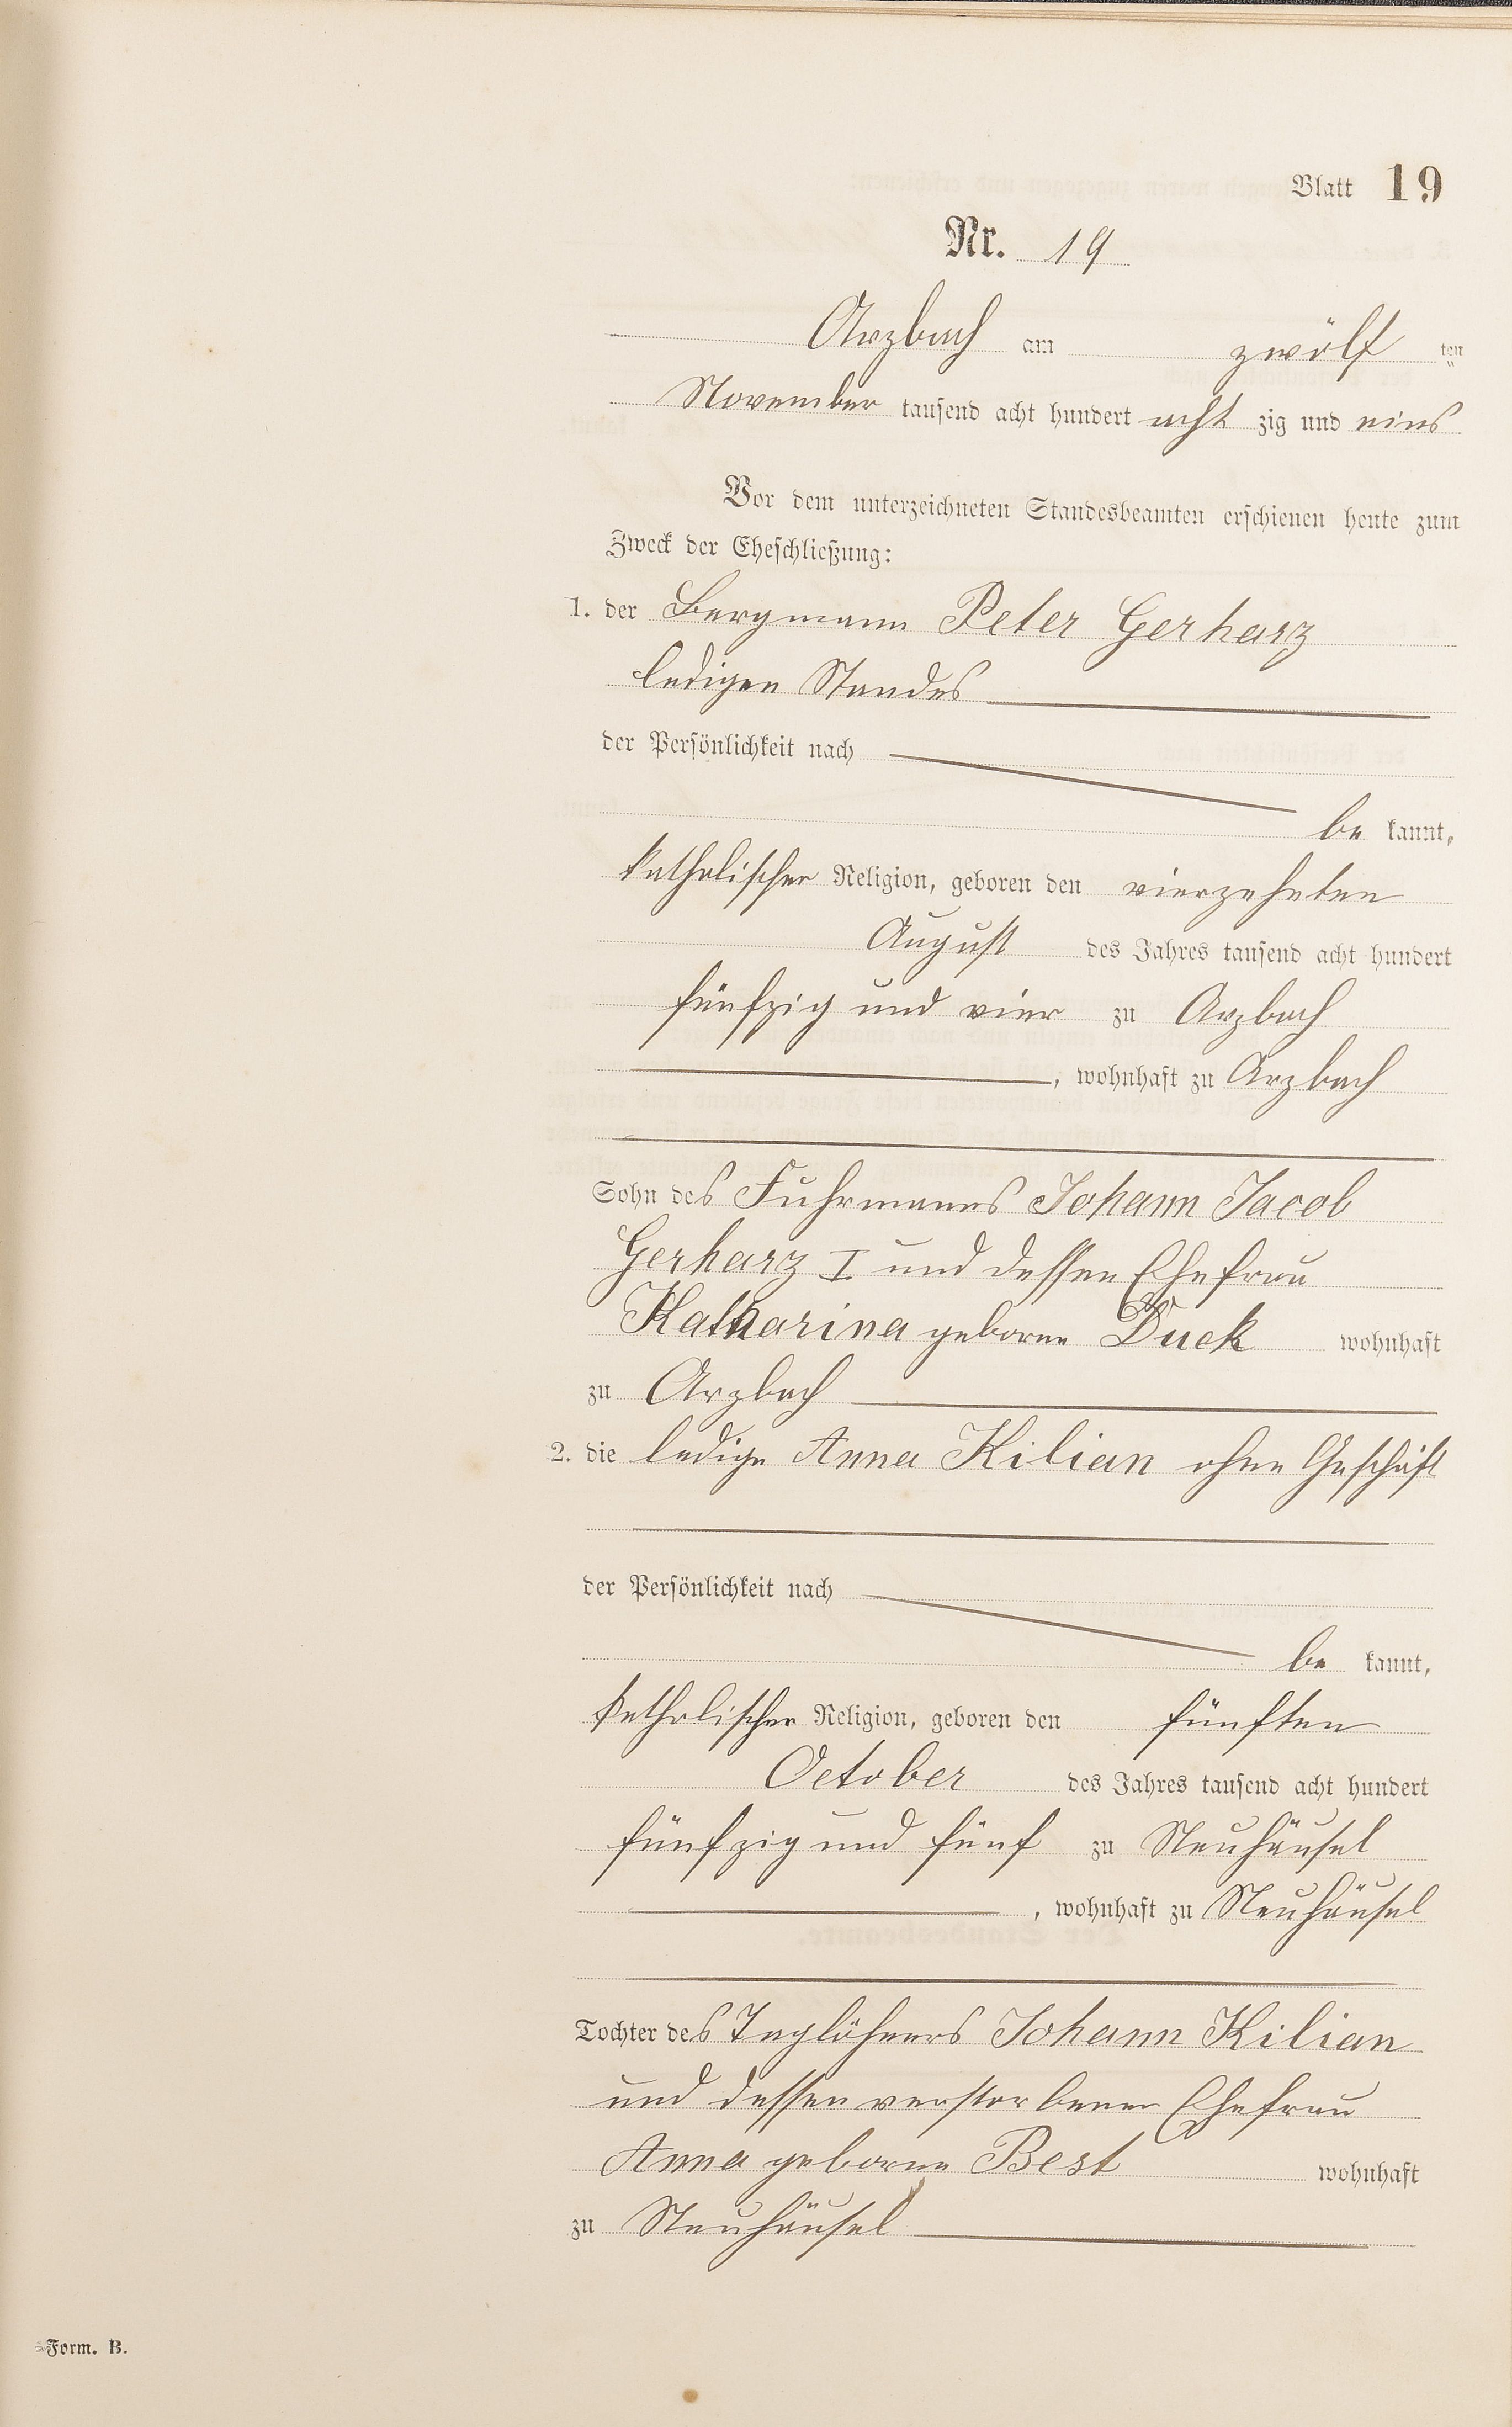 Blatt 19
Nr. 19
Arzbach am zwölf ten
November tausend acht hundert acht zig und eins
Vor dem unterzeichneten Standesbeamten erschienen heute zum
Zweck der Eheschließung:
1. der Bergmann Peter Gerharz
ledigen Standes
der Persönlichkeit nach
be kannt,
katholischer Religion, geboren den vierzehnten
August des Jahres tausend acht hundert
fünfzig und vier zu Arzbach
, wohnhaft zu Arzbach
Sohn des Fuhrmanns Johann Jacob
Gerharz I und dessen Ehefrau
Katharina geborne Duck wohnhaft
zu Arzbach
2. die ledige Anna Kilian ohne Geschäft
der Persönlichkeit nach
be kannt,
katholischer Religion, geboren den fünften
October des Jahres tausend acht hundert
fünfzig und fünf zu Neuhäusel
, wohnhaft zu Neuhäusel
Tochter des Taglöhners Johann Kilian
und dessen verstorbenen Ehefrau
Anna geborne Best wohnhaft
zu Neuhäusel
Form. B.